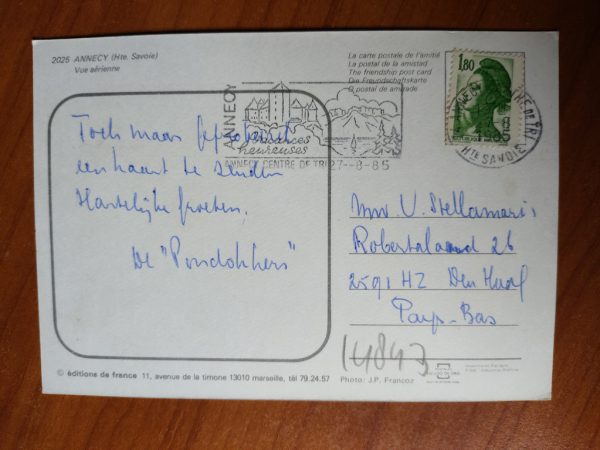 2025 ANNECY (Hte. Savoie)
Vue aérienne
La carte postale de l'amitié
La postal de la amistad
The friendship post card
Die Freundschaftskarte
O postal de amizade
1,80
ANNECY
Vacances
heureuses
ANNECY CENTRE DE TRI 27-8-85
HTE SAVOIE
Toch maar geprobeerd
een kaart te sturen
Hartelijke groeten,
De "Pindokkers"
Mw. V. Stellamaris
Robertaland 26
2591 HZ Den Haag
Pays-Bas
14843
© éditions de france 11, avenue de la timone 13010 marseille, tél 79.24.57
Photo: J.P. Francoz